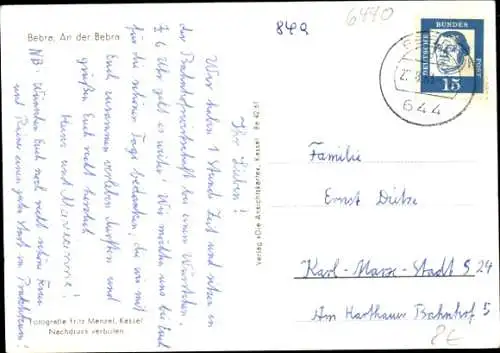 Bebra, An der Bebra
840
6440
DEUTSCHE BUNDESPOST
15
644
Ihr Lieben!
Wir haben 1 Stunde Zeit und sitzen in
der Bahnhofswirtschaft bei einem Würstchen.
Uhr geht es weiter! Wir möchten uns bei Euch
für die schönen Tage bedanken, die wir mit
Euch zusammen verleben durften und
grüßen Euch recht herzlich
Heinz und
NB. Wünschen Euch noch recht schöne Ferien
und Reiner einen guten
Verlag »Die Ansichtskarte«, Kassel Be 42 61
Fotografie Fritz Menzel, Kassel
Nachdruck verboten
Familie
Ernst Dietze
Karl-Marx-Stadt S 24
Am Harthauer Bahnhof 5
8€